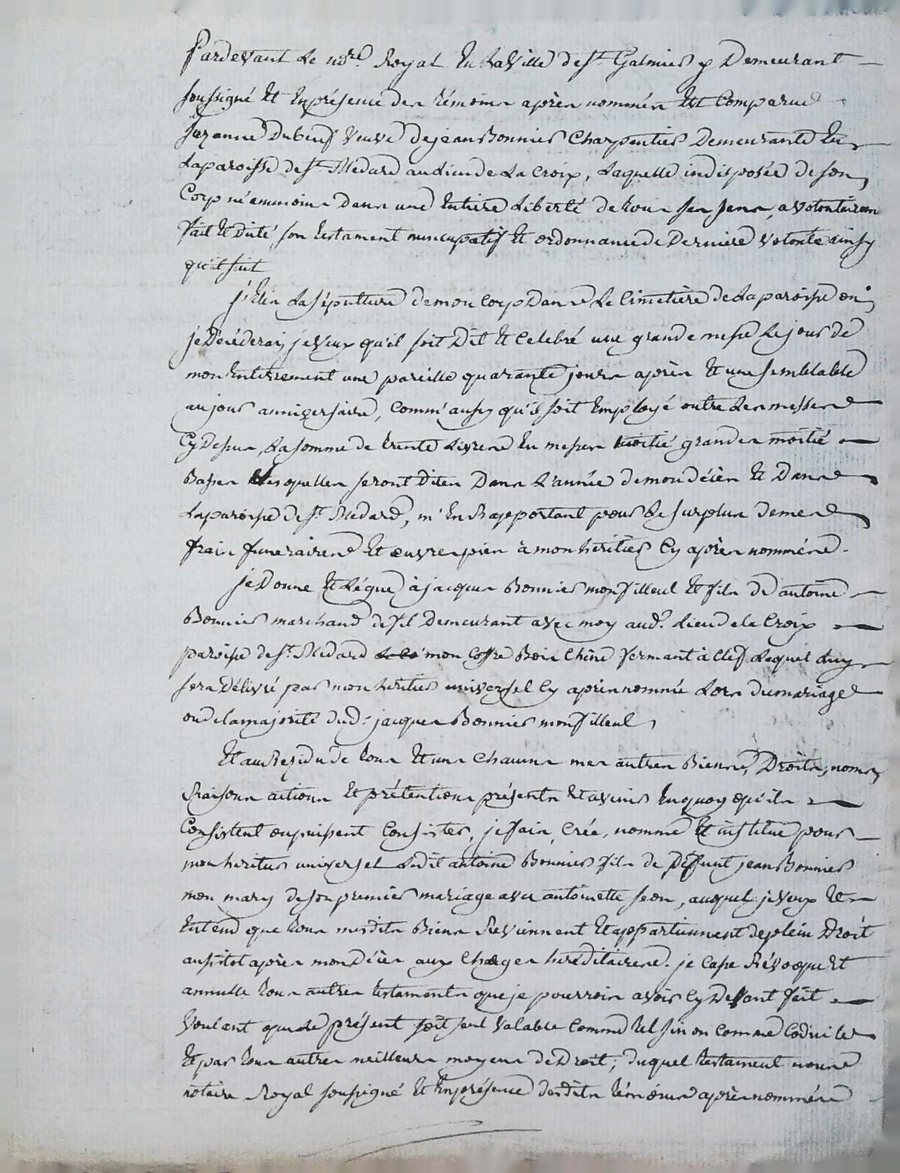 Pardevant Le no.re Royal En La Ville de St Galmier y Demeurant
soussigné Et En présence des témoins après nommés Est Comparue
Suzanne Dubeuf Veuve de jean Bonnier Charpentier Demeurante En
La paroisse de St Medard au lieu de La Croix, Laquelle indisposée de son
Corp néammoins Dans une Entiere Liberté de tous ses sens, a volontairem
fait Et Dicté son testament nuncupatif Et ordonnance de Derniere volonté ainsy
qu'il suit
j'Elis La sépulture de mon Corp Dans Le Cimetiere de La paroisse ou
je Décéderai, je veux qu'il soit Dit Et Celebré une grande messe Le jour de
mon Enterrement une pareille quarante jours après Et une semblable
au jour anniversaire, Comm'aussy qu'il soit Employé outre Les messes
Cy Dessus, La somme de trente Livres En messes moitié grandes moitié
Basses Lesquelles seront Dites Dans L'année de mon décès Et Dans
La paroisse de St Medard, m'En Rapportant pour Le surplus de mes
frais funeraires Et œuvres pies à mon heritier Cy après nommé.
je Donne Et Lègue à jacques Bonnier mon filleul Et fils d'antoine
Bonnier marchand de fil Demeurant avec moy aud. Lieu de La Croix
paroisse de St Medard mon Coffre Bois Chêne fermant à Clef Lequel Luy
sera Délivré par mon heritier universel Cy après nommé Lors du mariage
ou de la majorité dud. jacques Bonnier mon filleul,
Et au Residu de tous Et uns Chacuns mes autres Biens, Droits, noms,
Raisons actions Et prétentions présents Et avenir En quoy qu'ils
Consistent ou puissent Consister, je fais, Crée, nomme Et institue pour
mon heritier universel Ledit antoine Bonnier fils de Deffunt jean Bonnier
mon mary de son premier mariage avec antoinette, auquel je veux Et
Entend que tous mesdits Biens Reviennent Et appartiennent de plein Droit
aussitot après mon Décès aux Charges héréditaires. je Casse Révoque Et
annulle tous autres testaments que je pourrois avoir Cy Devant fait
Voulant que Le présent soit seul valable Comme tel sinon comme Codicile
Et par tous autres meilleurs moyens de Droit, duquel testament nous
notaire Royal soussigné Et En présence desdits témoins après nommés